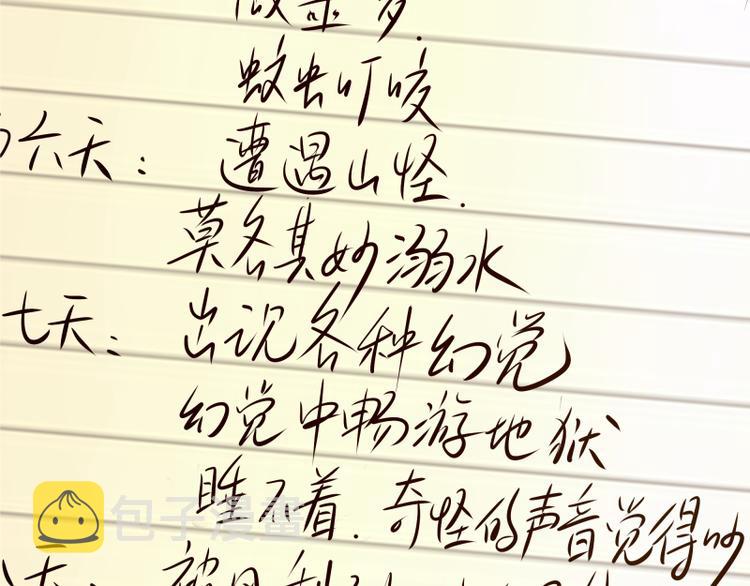 做噩梦.
蚊虫叮咬
六天: 遭遇山怪.
莫名其妙溺水
七天: 出现各种幻觉
幻觉中畅游地狱
睡不着.奇怪的声音觉得吵
包子漫畫